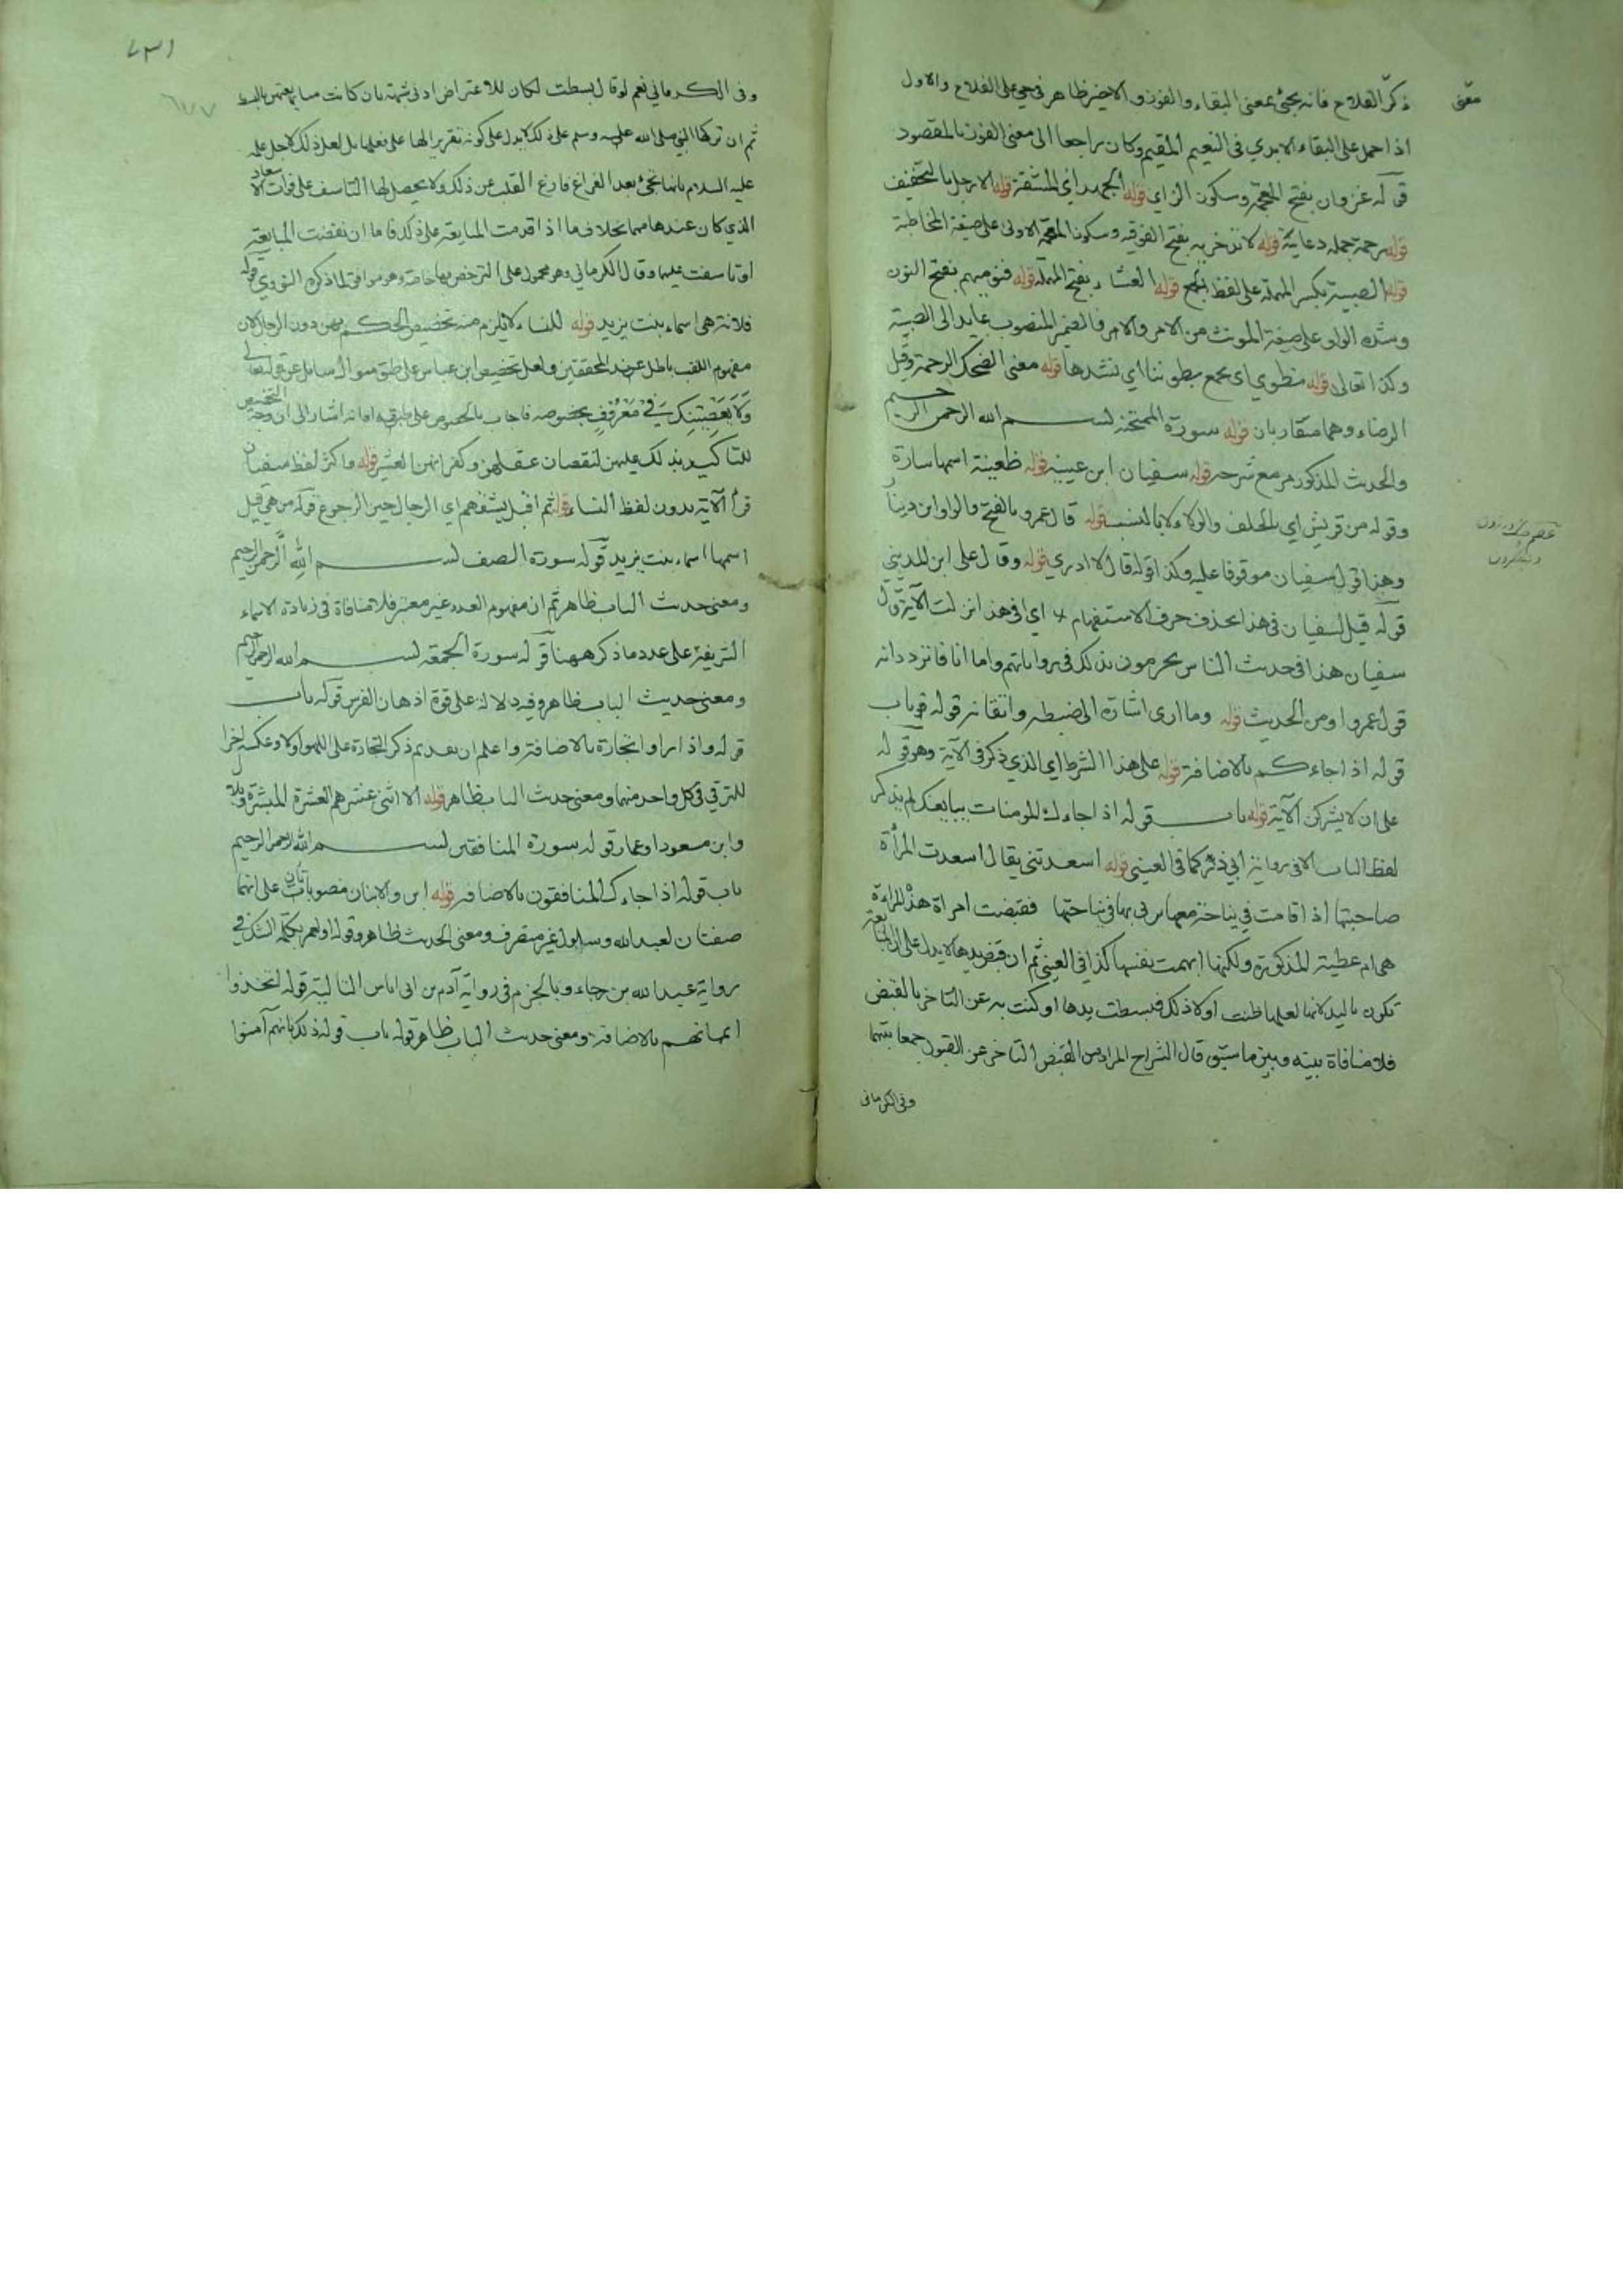 معنى
ذكر الفلاح فانه يجئ بمعنى البقاء والفوز والاخير ظاهر في حي على الفلاح والاول
اذا حمل على البقاء الابدي في النعيم المقيم وكان راجعا الى معنى الفوز بالمقصود
قوله غزوان بفتح المعجمة وسكون الزاي قوله الجهد اي المشقة قوله الارجل بالتخفيف
قوله رحمة جملة دعائية قوله لا تدخريه بفتح الفوقيه وسكون المعجمة الاولى على صيغة المخاطبة
قوله الصبية بكسر المهملة على لفظ الجمع قوله العشاء بفتح المهملة قوله فنوميهم بفتح النون
وشدة الواو على صيغة المونث من الامر والامر فالضمير المنصوب عايد الى الصبية
وكذا تعالى قوله منطوي اي نجمع بطوننا اي نشدها قوله معنى الضحك الرحمة وقيل
الرضاء وهما متقاربان قوله سورة الممتحنة بسم الله الرحمن الرحيم
والحديث المذكور مر مع شرحه قوله سفيان ابن عيينه قوله ظعينة اسمها سارة
وقوله من قريش اي بالحلف والولاء لا بالنسب قوله قال عمرو بالفتح والواو ابن دينار
وهذا قول سفيان موقوفا عليه وكذا قوله قال لا ادري قوله وقال على ابن المديني
قوله قيل لسفيان في هذا بحذف حرف الاستفهام اي افي هذا نزلت الآية قول
سفيان هذا في حديث الناس يجزمون بذلك في رواياتهم واما انا فاتردد انه
قول عمرو او من الحديث قوله وما ارى اشارة الى ضبطه واتقانه قوله باب
قوله اذا جاءكم بالاضافة قوله على هذا الشرط اي الذي ذكر في الآية وهو قوله
على ان لا يشركن الآية قوله باب قوله اذا جاءك المومنات يبايعنك لم يذكر
لفظ الباب الا في رواية ابي ذر كما في العيني قوله اسعدتني يقال اسعدت المرأة
صاحبتها اذا قامت في نياحة معها في نياحتها فقبضت امراة هذه المراءة
هي ام عطية المذكورة ولكنها ابهمت نفسها كذا في العيني ثم ان قبض يدها لا يدل على ان المبايعة
تكون باليد لانها لعلها ظنت اولا ذلك فبسطت يدها او كنت به عن التاخر بالقبض
فلا منافاة بينه وبين ما سبق قال الشراح المراد من القبض التاخر عن القبول جمعا بينهما
وفي الكرماني
وفي الكرماني نعم لو قال بسطت لكان للاعتراض ادنى شمة بان كانت مبايعتهن بالبسط
ثم ان تركها النبي صلى الله عليه وسلم على ذلك لا يدل على كونه تقريرا لها على فعلها بل لعل ذلك لاجل علمه
عليه السلام بانها تجئ بعد الفراغ فارغ القلب عن ذلك ولا يحصل لها التاسف على فوات الاسعاد
الذي كان عندها مهما بخلاف ما اذا قدمت المبايعة على ذلك فاما ان نقضت المبايعة
او تاسفت عليها وقال الكرماني وهو محمول على الترخص بها خاصة وهو موافق لما ذكره النووي قوله
فلانة هي اسماء بنت يزيد قوله للنساء لا يلزم منه تخصيص الحكم بهن دون الرجال لان
مفهوم اللقب باطل عند المحققين ولعل تخصيص ابن عباس على طبق سوال سائل عن قوله تعالى
وَلَا يَعْصِينَكَ فِي مَعْرُوفٍ بخصوصه فاجاب بالخصوص على طبقه او انه اشار الى ان وجه التخصيص
للتاكيد بذلك عليهن لنقصان عقلهن وكفرانهن العشير قوله واكثر لفظ سفيان
قرأ الآية بدون لفظ النساء قوله ثم اقبل يشقهم اي الرجال حين الرجوع قوله من هي قيل
اسمها اسماء بنت يزيد قوله سورة الصف بسم الله الرحمن الرحيم
ومعنى حديث الباب ظاهر ثم ان مفهوم العدد غير معتبر فلا منافاة في زيادة الاسماء
الشريفة على عدد ما ذكر ههنا قوله سورة الجمعة بسم الله الرحمن الرحيم
ومعنى حديث الباب ظاهر وفيه دلالة على قوة اذهان الفرس قوله باب
قوله واذا راوا تجارة بالاضافة واعلم ان تقديم ذكر التجارة على اللهو اولا وعكسه اخرا
للترقي في كل واحد منهما ومعنى حديث الباب ظاهر قوله الا اثنى عشر هم العشرة المبشرة وبلال
وابن مسعود او عمار قوله سورة المنافقين بسم الله الرحمن الرحيم
باب قوله اذا جاءك المنافقون بالاضافة قوله ابن والابنان منصوبتان على انهما
صفتان لعبد الله وسلول غير منصرف ومعنى الحديث ظاهر وقوله او لعمر بكلمة الشك في
رواية عبد الله بن رجاء وبالجزم في رواية آدم بن ابي اياس التالية قوله اتخذوا
ايمانهم بالاضافة ومعنى حديث الباب ظاهر قوله باب قوله ذلك بانهم آمنوا